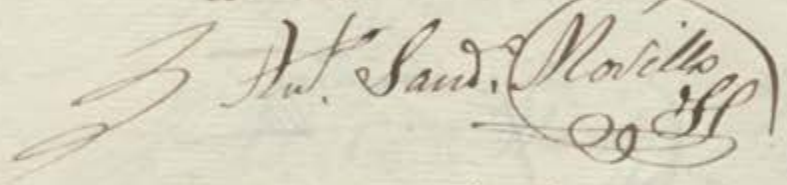 Ant. Sand. Novillo